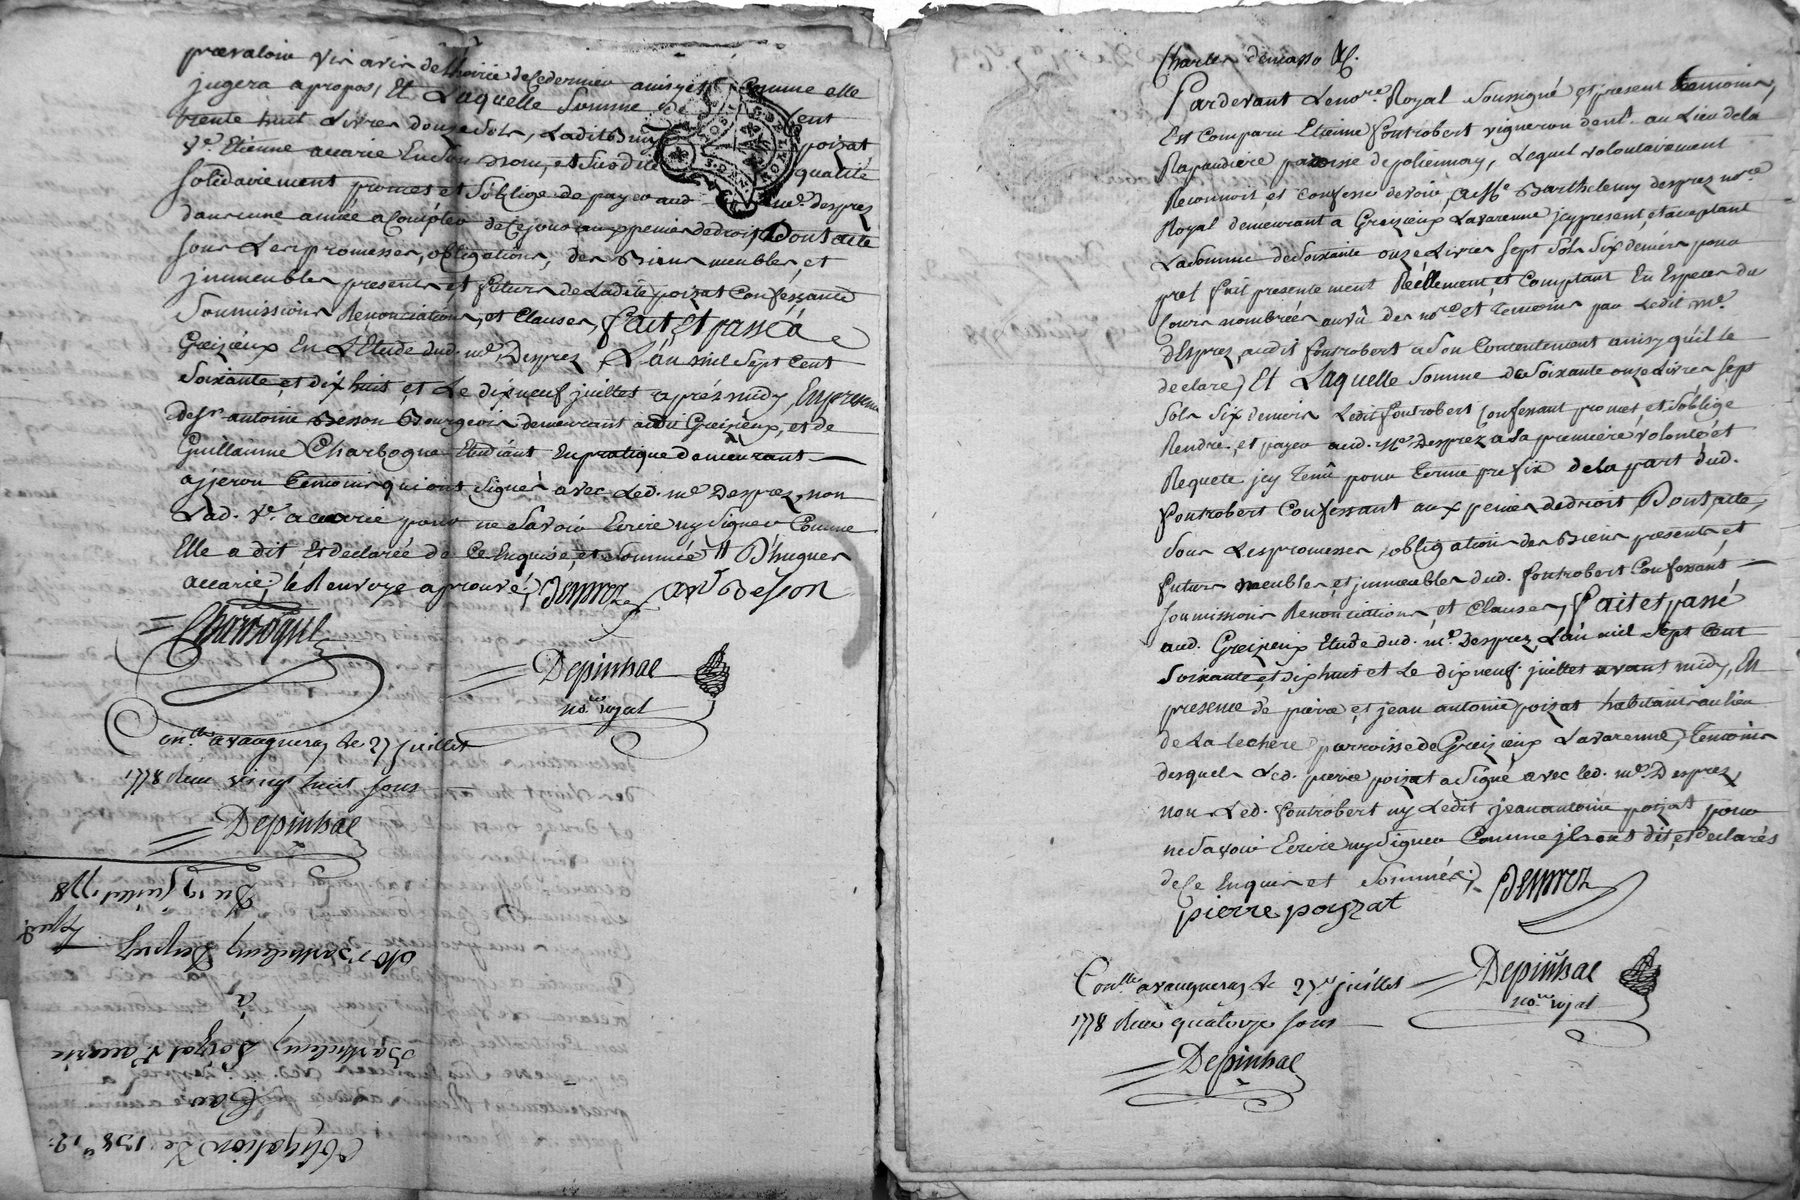 prevaloir vis avis de l'hoirie de ce dernier ainsy et Comme elle
jugera apropos, Et Laquelle Somme de Cent
trente huit Livres douze Sols, Ladite poizat
Ve. Etienne accarie En Son nom, et Susdite qualité
solidairement promet et S'oblige de payer aud. me. desprez
dans une année a Compter de Ce jour aux peines de droit, Dont acte
sous Les promesses, obligations, des Biens meubles, et
jmmeubles presents et futurs de Ladite poizat Confessante
Soumissions Renonciations, et Clauses, fait, Et passé à
Greizieux En L'Etude dud. me. Desprez L'an mil Sept Cent
Soixante et dix huit et Le dix neuf juillet aprés midy En presence
de Sr. antoine Besson Bourgeois demeurant audit Greizieux, et de
Guillaume Charbogne Etudiant En pratique demeurant
a jzeron temoins qui ont Signés avec Led. me. Desprez, non
Lad. Ve. accarie pour ne Savoir Ecrire ny Signer Comme
Elle a dit et declarée de Ce Enquise, et Sommée # D'hugues
accarie, le Renvoye aprouvé, Desprez ant Besson
Charbogne
Depinhac
nore. royal
Conllé. a vaugneray le 27 juillet
1778 Reçu vingt huit sous
Depinhac
Obligation De 138 ll 12 s
Par
Barthelemy Poizat Ve accarie
à
Me Barthelemy Desprez
Du 19 Juillet 1778
Exped.
Charles demasso &c.
Pardevant Le nore. Royal soussigné et present temoins,
Est Comparu Etienne fontrobert vigneron demt. au Lieu de la
Rapaudiere paroisse de poliennay, Lequel volontairement
Reconnoit et Confesse devoir, a Me Barthelemy desprez nore
Royal demeurant a Greizieux Lavarenne jcy present, et acceptant
La Somme de Soixante onze Livres Sept Sols Six deniers pour
pret fait presentement Réellement et Comptant En Especes du
Cours nombrées au vû des nore. et temoins par Ledit me.
d'Esprez audit fontrobert a Son Contentement ainsy qu'il le
declare, Et Laquelle Somme de Soixante onze Livres sept
Sols Six deniers Ledit fontrobert Confessant promet, et S'oblige
Rendre, et payer aud. Me. Desprez a la premiere volonté et
Requete jcy tenû pour terme prefix de la part dud.
fontrobert Confessant aux peines de droit Dont acte,
Sous Les promesses, obligations des Biens presents et
futurs meubles, et jmmeubles dud. fontrobert Confessant
soumissions Renonciations, et Clauses, fait et passé
aud. Greizieux Etude dud. me. Desprez L'an mil Sept Cent
Soixante et dix huit et Le dix neuf juillet avant midy, En
presence de pierre et jean antoine poizat habitants au lieu
de La lechere parroisse de Greizieux Lavarenne, temoins
desquels Led. pierre poizat a Signé avec led. me. Desprez,
non Led. fontrobert ny Ledit jean antoine poizat pour
ne Savoir Ecrire ny Signer Comme jls ont dit, et declarés
de Ce Enquis et Sommés
Desprez
pierre poyzat
Depinhac
nore. royal
Conllé. a vaugneray le 27e juillet
1778 Reçu quatorze sous
Depinhac